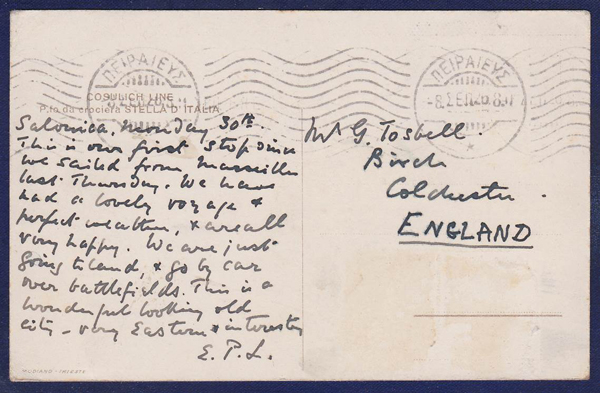 ΠΕΙΡΑΙΕΥΣ
ΠΕΙΡΑΙΕΥΣ
COSULICH LINE
P.fo da crociera STELLA D'ITALIA
Salonica, Monday 30th.
This is our first stop since
we sailed from Marseilles
last Thursday. We have
had a lovely voyage &
perfect weather, & are all
very happy. We are just
going to land, & go by car
over battlefields. This is a
wonderful looking old
city - very Eastern & interesting
E. P. L.
Mr G. Tosbell.
Birch
Colchester.
ENGLAND
MODIANO - TRIESTE